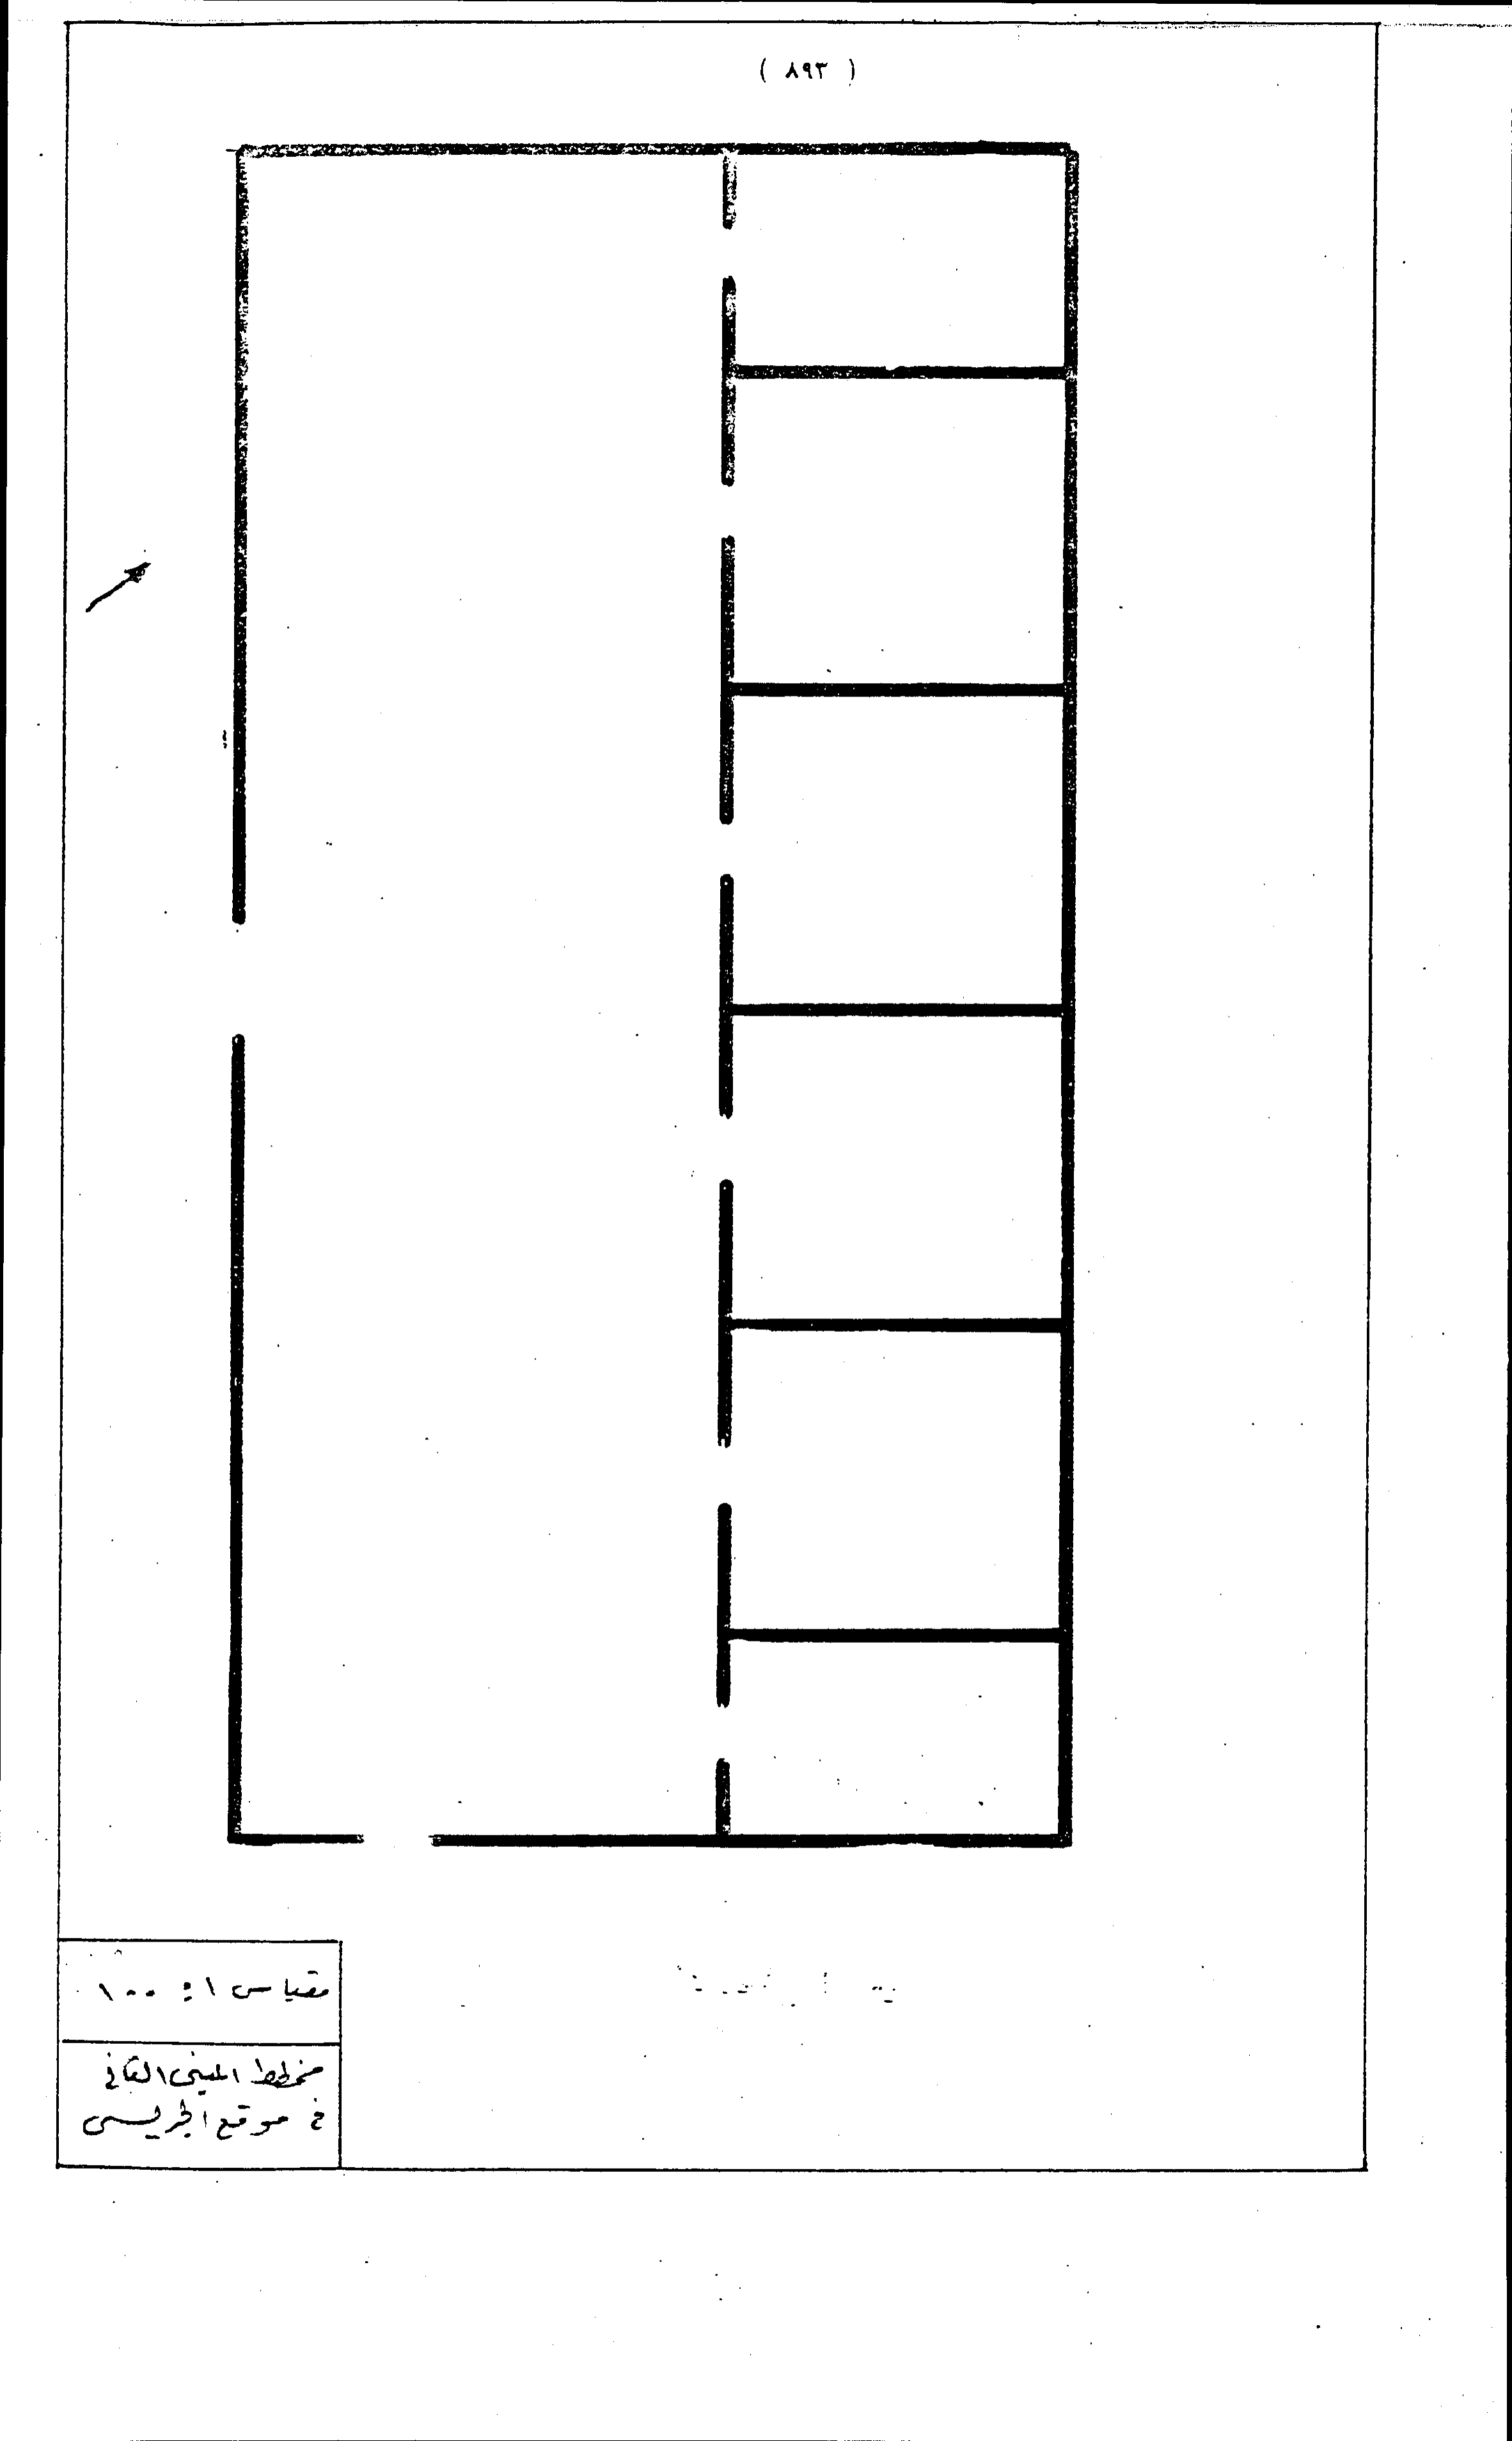 ( ٨٩٣ )
مقياس ١ : ١٠٠
مخطط المبنى الثاني
في موقع الجريسى